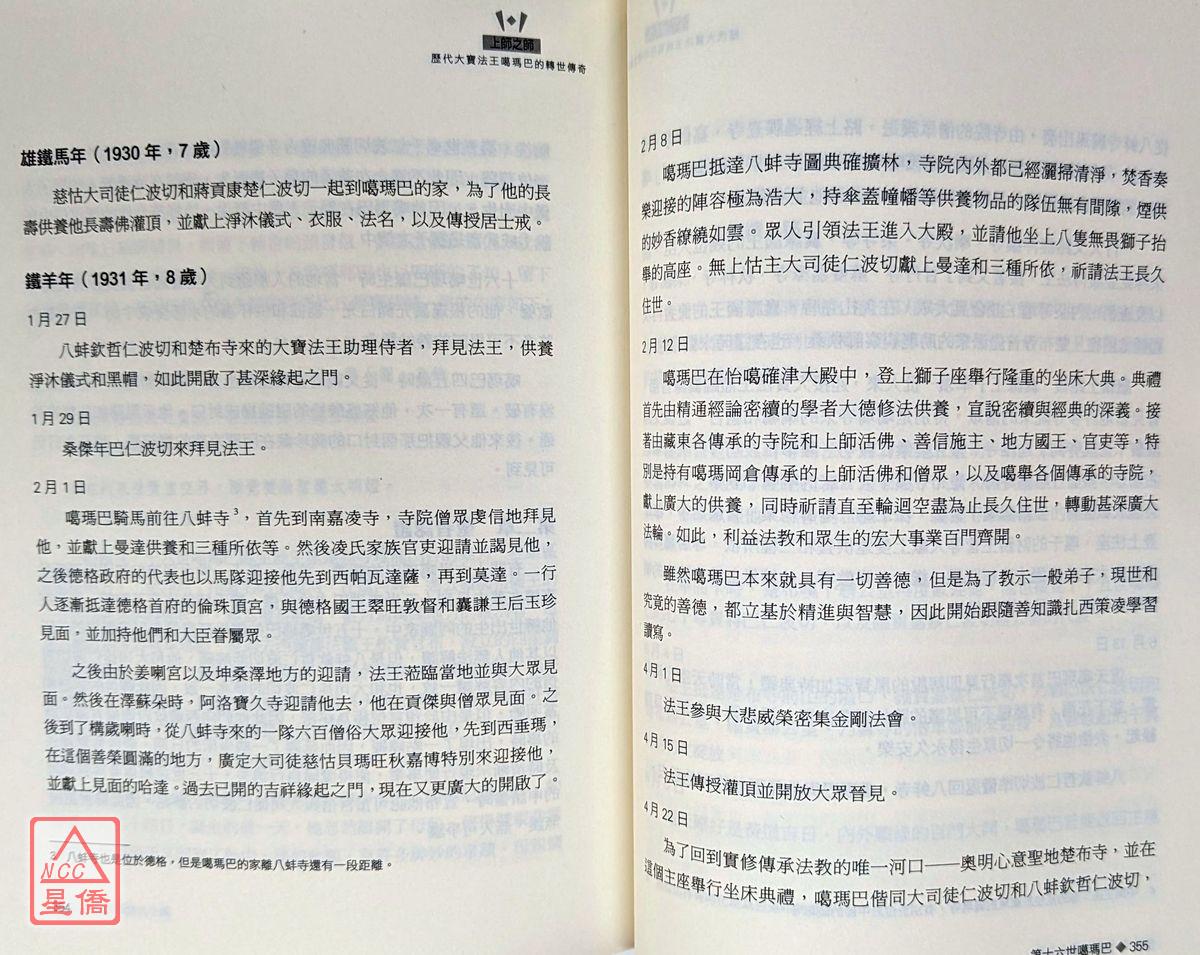 上師之師
歷代大寶法王噶瑪巴的轉世傳奇
雄鐵馬年（1930 年，7 歲）
慈怙大司徒仁波切和蔣貢康楚仁波切一起到噶瑪巴的家，為了他的長
壽供養他長壽佛灌頂，並獻上淨沐儀式、衣服、法名，以及傳授居士戒。
鐵羊年（1931 年，8 歲）
1 月 27 日
八蚌欽哲仁波切和楚布寺來的大寶法王助理侍者，拜見法王，供養
淨沐儀式和黑帽，如此開啟了甚深緣起之門。
1 月 29 日
桑傑年巴仁波切來拜見法王。
2 月 1 日
噶瑪巴騎馬前往八蚌寺3，首先到南嘉凌寺，寺院僧眾虔信地拜見
他，並獻上曼達供養和三種所依等。然後凌氏家族官吏迎請並謁見他，
之後德格政府的代表也以馬隊迎接他先到西帕瓦達薩，再到莫達。一行
人逐漸抵達德格首府的倫珠頂宮，與德格國王翠旺敦督和囊謙王后玉珍
見面，並加持他們和大臣眷屬眾。
之後由於姜喇宮以及坤桑澤地方的迎請，法王蒞臨當地並與大眾見
面。然後在澤蘇朵時，阿洛寶久寺迎請他去，他在貢傑與僧眾見面。之
後到了構歲喇時，從八蚌寺來的一隊六百僧俗大眾迎接他，先到西垂瑪，
在這個善榮圓滿的地方，廣定大司徒慈怙貝瑪旺秋嘉博特別來迎接他，
並獻上見面的哈達。過去已開的吉祥緣起之門，現在又更廣大的開啟了。
3 八蚌寺也是位於德格，但是噶瑪巴的家離八蚌寺還有一段距離。
NCC
星僑
2 月 8 日
噶瑪巴抵達八蚌寺圖典確擴林，寺院內外都已經灑掃清淨，焚香奏
樂迎接的陣容極為浩大，持傘蓋幢幡等供養物品的隊伍無有間隙，煙供
的妙香繚繞如雲。眾人引領法王進入大殿，並請他坐上八隻無畏獅子抬
舉的高座。無上怙主大司徒仁波切獻上曼達和三種所依，祈請法王長久
住世。
2 月 12 日
噶瑪巴在怡噶確津大殿中，登上獅子座舉行隆重的坐床大典。典禮
首先由精通經論密續的學者大德修法供養，宣說密續與經典的深義。接
著由藏東各傳承的寺院和上師活佛、善信施主、地方國王、官吏等，特
別是持有噶瑪岡倉傳承的上師活佛和僧眾，以及噶舉各個傳承的寺院，
獻上廣大的供養，同時祈請直至輪迴空盡為止長久住世，轉動甚深廣大
法輪。如此，利益法教和眾生的宏大事業百門齊開。
雖然噶瑪巴本來就具有一切善德，但是為了教示一般弟子，現世和
究竟的善德，都立基於精進與智慧，因此開始跟隨善知識扎西策凌學習
讀寫。
4 月 1 日
法王參與大悲威榮密集金剛法會。
4 月 15 日
法王傳授灌頂並開放大眾晉見。
4 月 22 日
為了回到實修傳承法教的唯一河口——奧明心意聖地楚布寺，並在
這個主座舉行坐床典禮，噶瑪巴偕同大司徒仁波切和八蚌欽哲仁波切，
第十六世噶瑪巴 ◆ 355